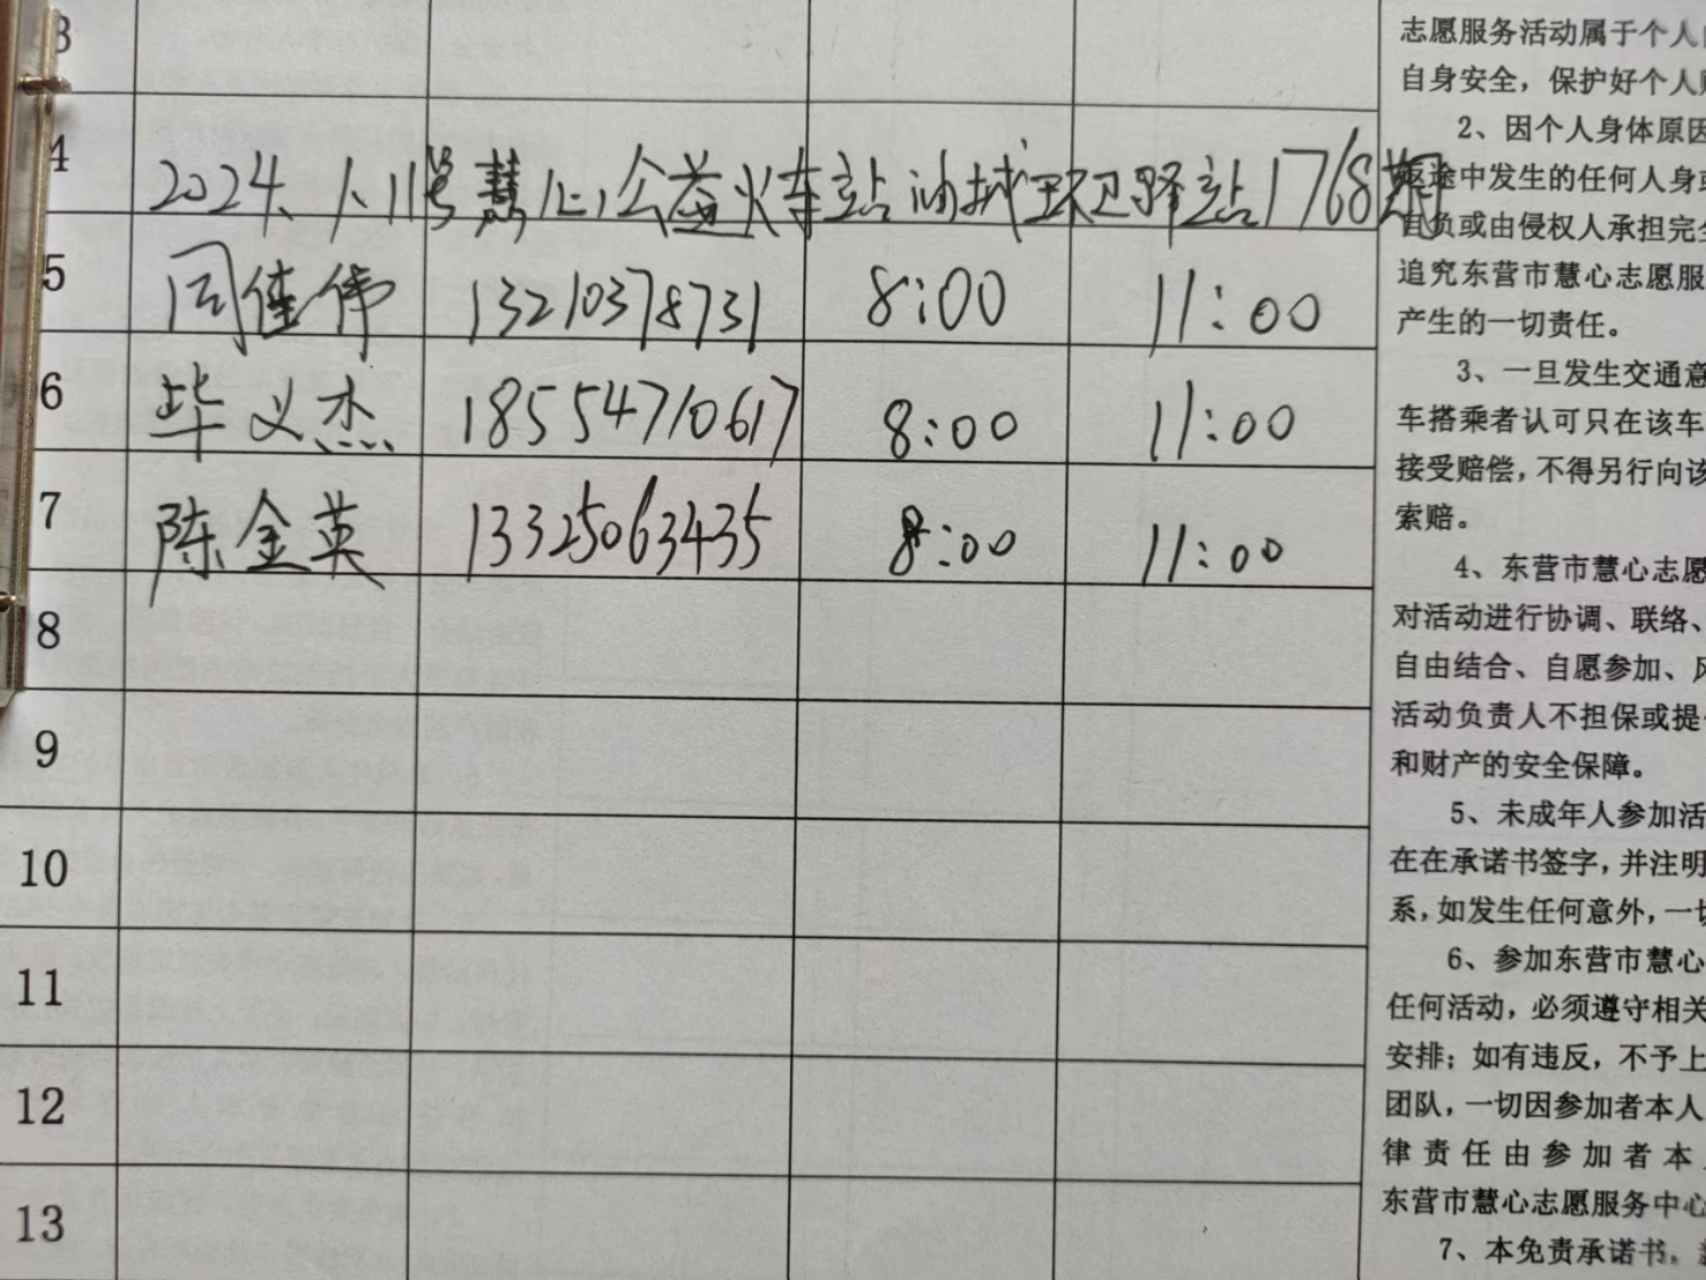 3
4 2024、1、11号慧心公益火车站油城环卫驿站1768期
5 闫佳伟 13210378731 8:00 11:00
6 毕义杰 18554710617 8:00 11:00
7 陈金英 13325063435 8:00 11:00
8
9
10
11
12
13
志愿服务活动属于个人
自身安全，保护好个人
2、因个人身体原因
返途中发生的任何人身或
自负或由侵权人承担完全
追究东营市慧心志愿服
产生的一切责任。
3、一旦发生交通意
车搭乘者认可只在该车
接受赔偿，不得另行向该
索赔。
4、东营市慧心志愿
对活动进行协调、联络、
自由结合、自愿参加、风
活动负责人不担保或提
和财产的安全保障。
5、未成年人参加活
在在承诺书签字，并注明
系，如发生任何意外，一切
6、参加东营市慧心
任何活动，必须遵守相关
安排；如有违反，不予上
团队，一切因参加者本人
律责任由参加者本
东营市慧心志愿服务中心
7、本免责承诺书，